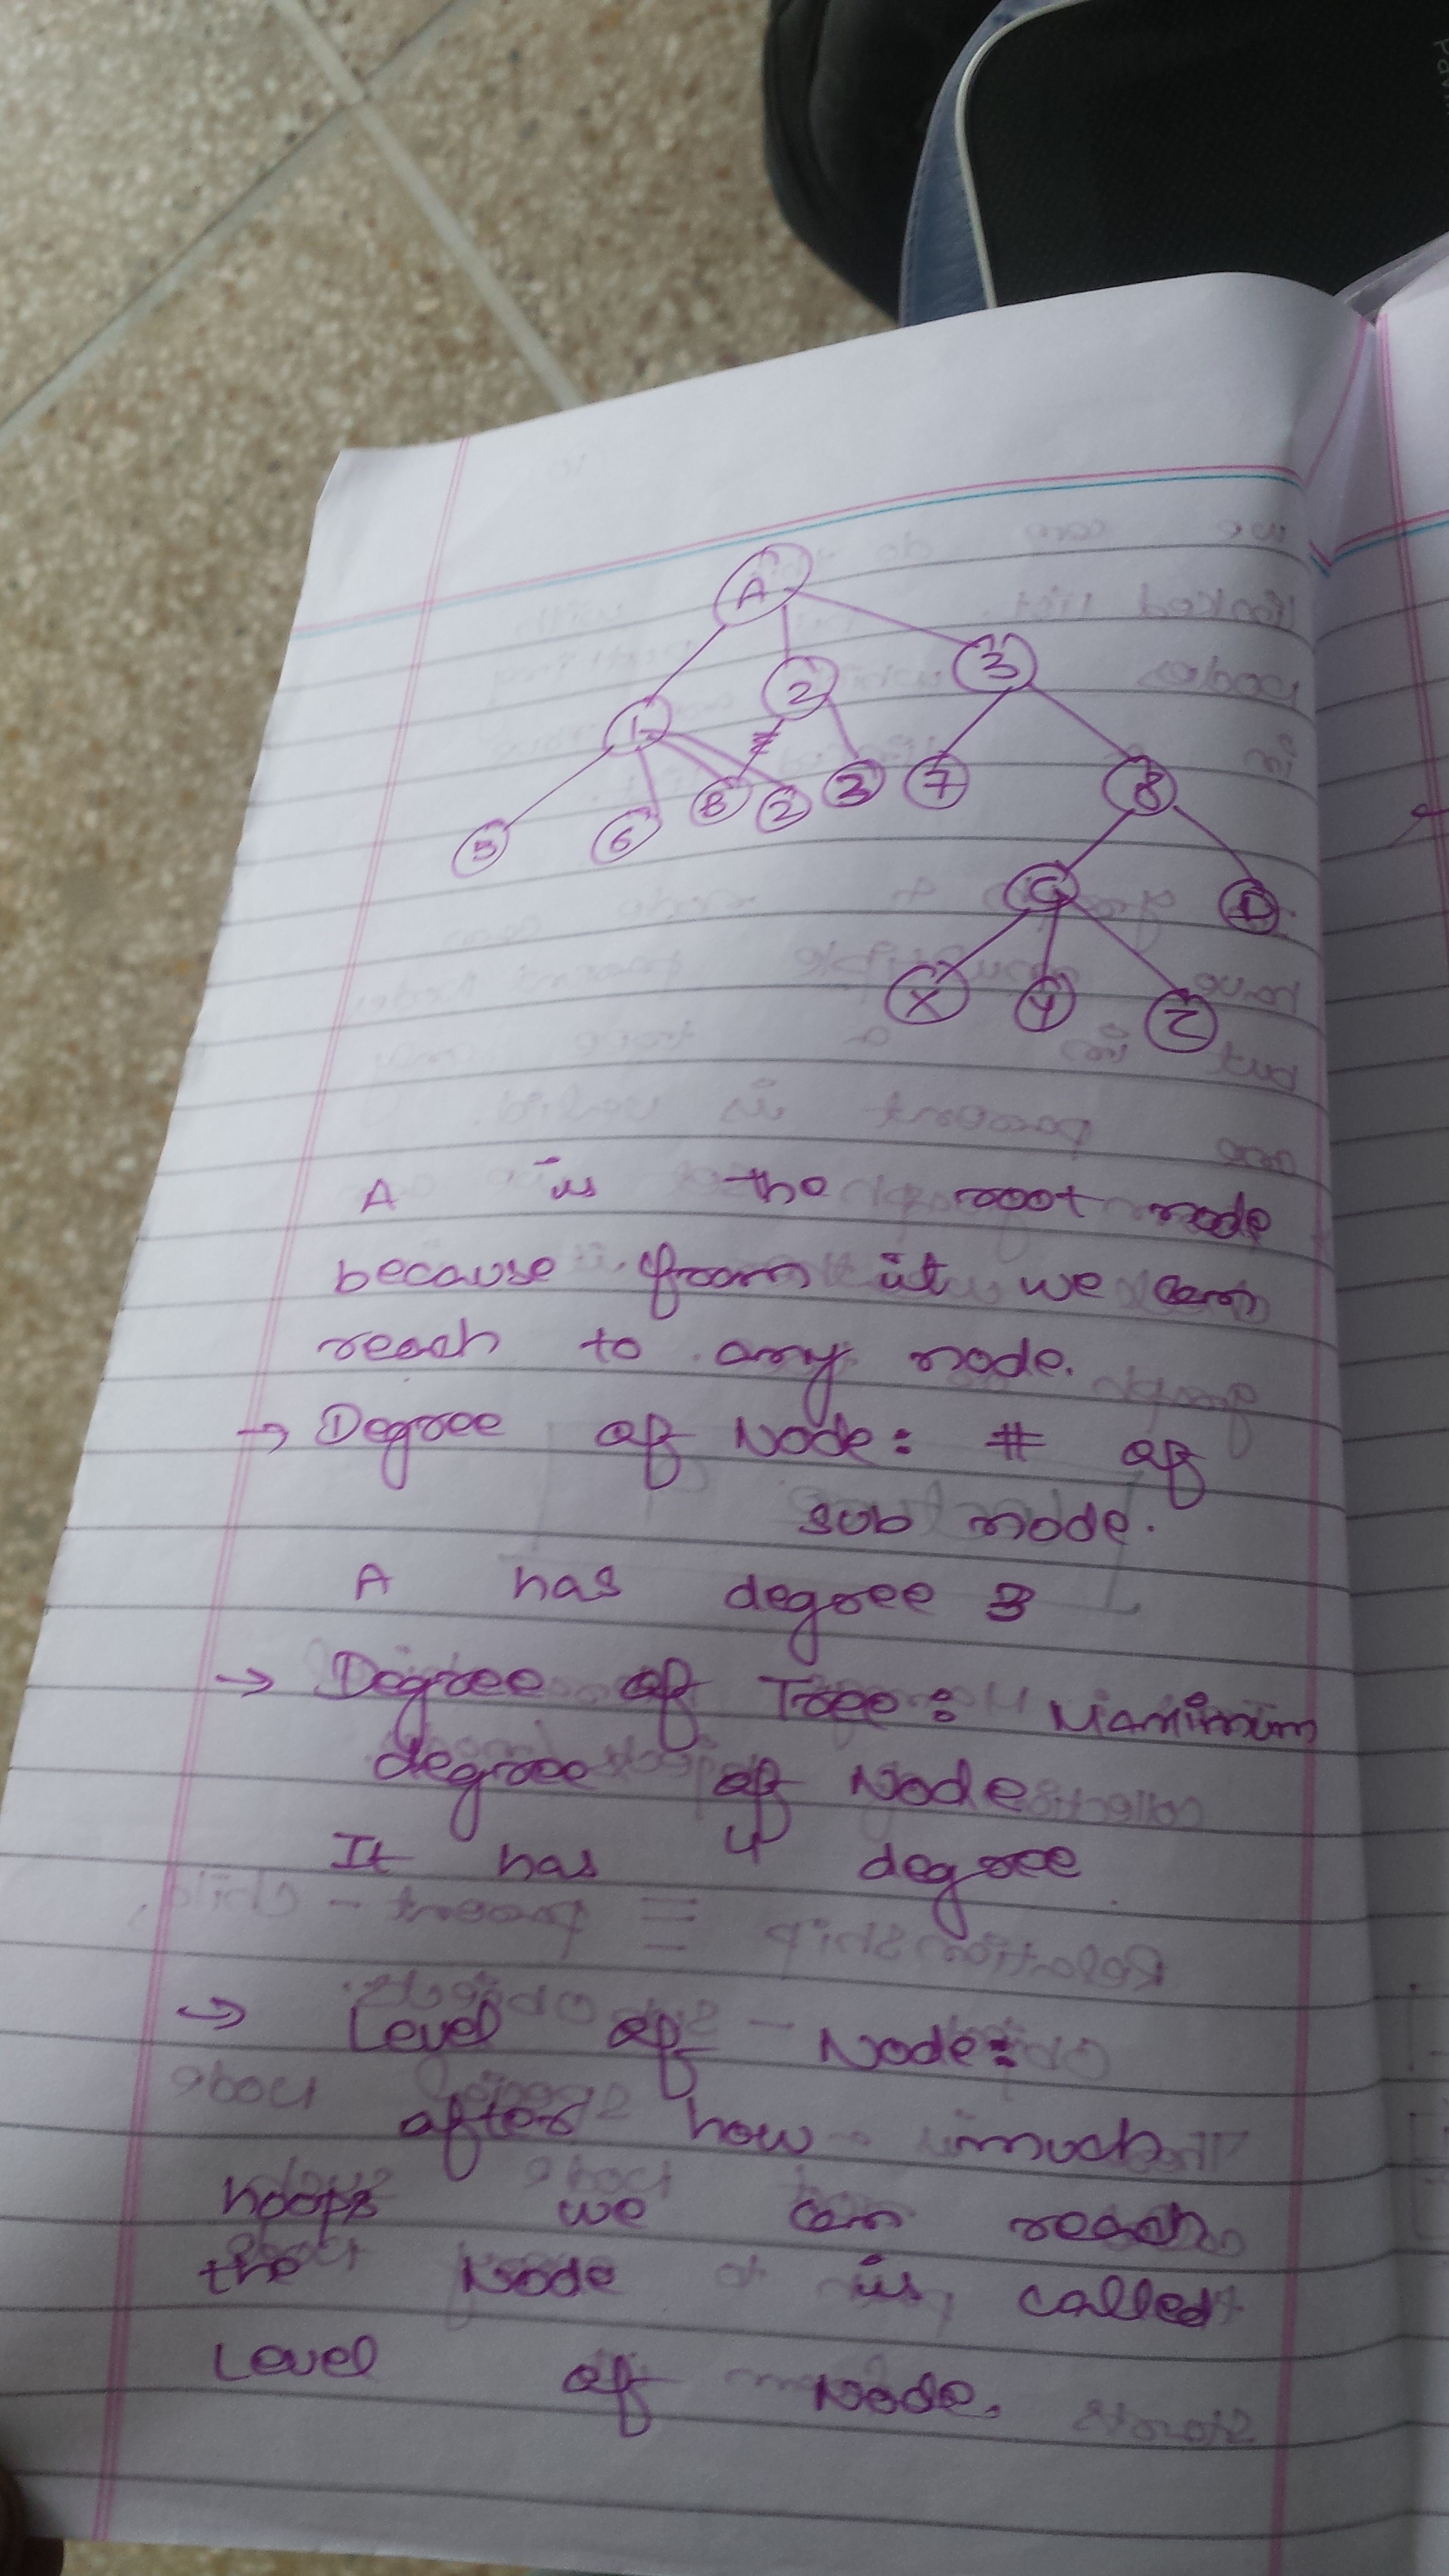 A
1 2 3
5 6 B 2 3 7 8
C D
X Y Z
A is the root node
because from it we can
reach to any node.
→ Degree of Node: # of
sub node.
A has degree 3
→ Degree of Tree: Maximum
degree of Node
It has 4 degree
→ Level of Node:
after how much
hoops we can reach
the Node is called
Level of Node.